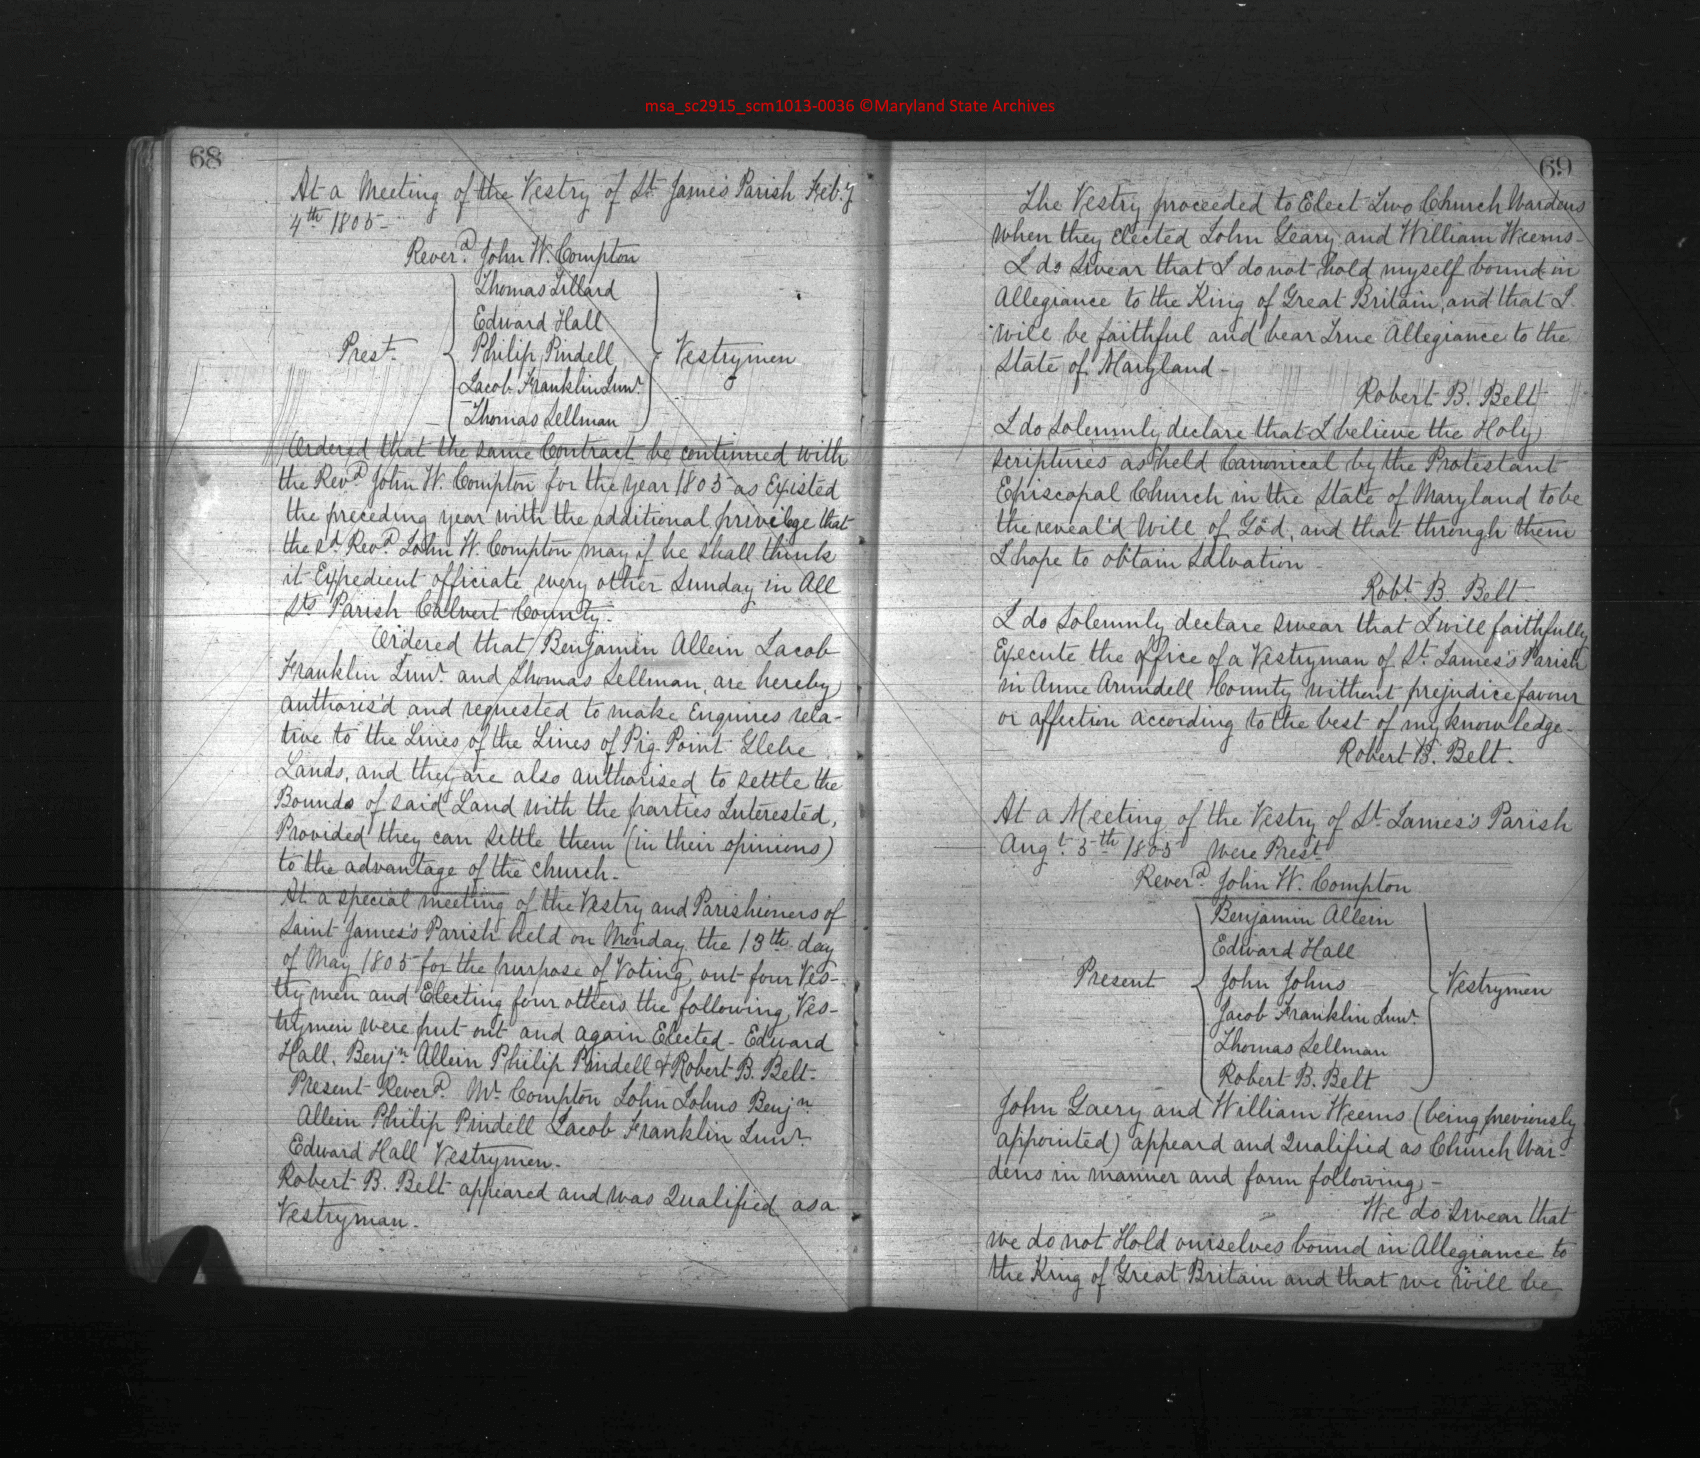 msa_sc2915_scm1013-0036 ©Maryland State Archives
68
At a Meeting of the Vestry of St James Parish Feb.y
4th 1805-
Reverd. John W. Compton
Thomas Tillard
Edward Hall
Prest. Philip Pindell Vestrymen
Jacob Franklin Junr.
Thomas Sellman
Ordered that the same Contract be continued with
the Revd. John W. Compton for the year 1805 as Existed
the preceding year with the additional privilege that
the sd. Revd. John W. Compton may if he shall think
it Expedient officiate every other Sunday in All
Sts Parish Calvert County.
Ordered that Benjamin Allein Jacob
Franklin Junr. and Thomas Sellman, are hereby
authoris'd and requested to make Enquires rela-
tive to the Lines of the Lines of Pig Point Glebe
Lands, and they are also authorised to settle the
Bounds of said Land with the parties Interested,
Provided they can settle them (in their opinions)
to the advantage of the church.
At a special meeting of the Vestry and Parishioners of
Saint James's Parish held on Monday the 13th day
of May 1805 for the purpose of Voting out four Ves-
try men and Electing four others the following Ves-
trymen were put out and again Elected - Edward
Hall, Benjn. Allein Philip Pindell & Robert B. Belt.
Present Reverd. Mr. Compton John Johns Benjn.
Allein Philip Pindell Jacob Franklin Junr.
Edward Hall Vestrymen.
Robert B. Belt appeared and was Qualified as a
Vestryman.
69
The Vestry proceeded to Elect Two Church Wardens
when they elected John Geary and William Weems-
I do swear that I do not hold myself bound in
Allegiance to the King of Great Britain, and that I
will be faithful and bear True Allegiance to the
State of Maryland-
Robert B. Belt
I do solemnly declare that I believe the Holy
scriptures as held Canonical by the Protestant
Episcopal Church in the State of Maryland to be
the reveal'd Will of God, and that through them
I hope to obtain Salvation-
Robt. B. Belt.
I do solemnly declare swear that I will faithfully
Execute the office of a Vestryman of St. James's Parish
in Anne Arundell County without prejudice favour
or affection according to the best of my knowledge-
Robert B. Belt.
At a Meeting of the Vestry of St. James's Parish
Augt. 5th 1805 Were Prest
Reverd. John W. Compton
Benjamin Allein
Edward Hall
Present John Johns Vestrymen
Jacob Franklin Junr.
Thomas Sellman
Robert B. Belt
John Gaery and William Weems (being previously
appointed) appeard and Qualified as Church War-
dens in manner and form following-
We do swear that
we do not Hold ourselves bound in Allegiance to
the King of Great Britain and that we will be